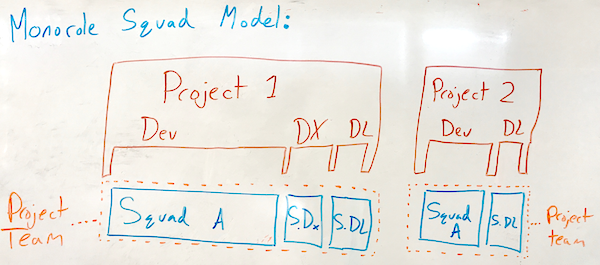 Monocole Squad Model:
Project 1
Dev DX DL
Project 2
Dev DL
Project
Team
Squad A
S.Dx
S.DL
Squad
A
S.DL
Project
team